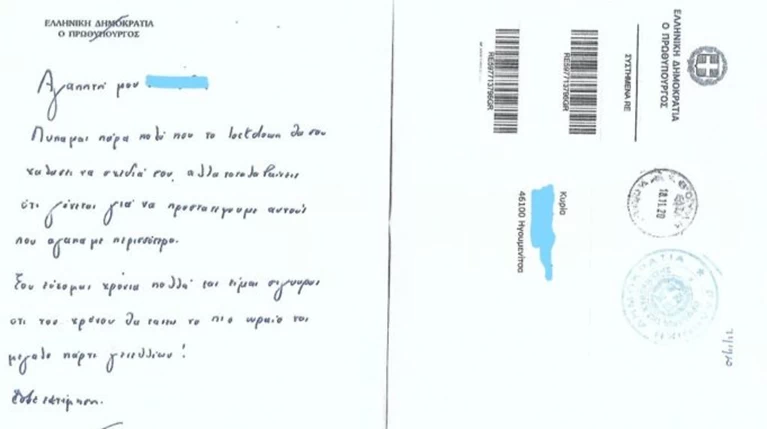 ΕΛΛΗΝΙΚΗ ΔΗΜΟΚΡΑΤΙΑ
Ο ΠΡΩΘΥΠΟΥΡΓΟΣ
Αγαπητή μου
Λυπάμαι πάρα πολύ που το lockdown θα σου
χαλάσει τα σχέδιά σου, αλλά καταλαβαίνεις
ότι γίνεται για να προστατέψουμε αυτούς
που αγαπάμε περισσότερο.
Σου εύχομαι χρόνια πολλά και είμαι σίγουρος
ότι του χρόνου θα κάνεις το πιο ωραίο και
μεγάλο πάρτι γενεθλίων!
εκτίμηση.
ΕΛΛΗΝΙΚΗ ΔΗΜΟΚΡΑΤΙΑ
Ο ΠΡΩΘΥΠΟΥΡΓΟΣ
ΣΥΣΤΗΜΕΝΑ RE
RE597713795GR
RE597713795GR
Κυρία
46100 Ηγουμενίτσα
18.11.20